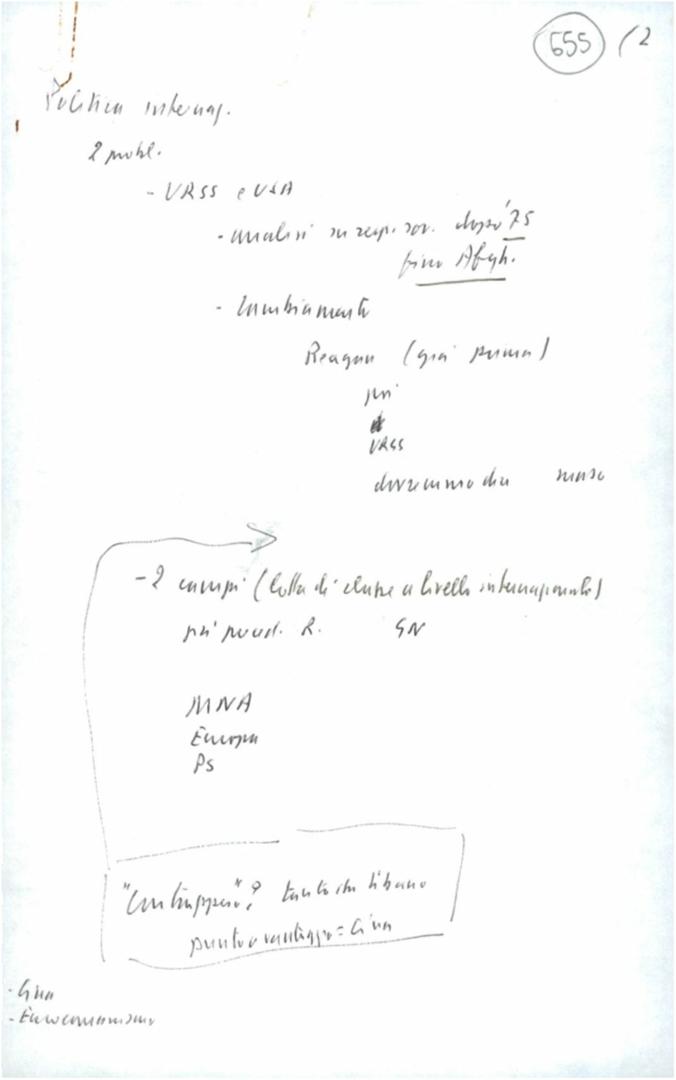 655 /2
Politica internaz.
2 probl.
- URSS e USA
- analisi su resp. sov. dopo '75
fino Afgh.
- Cambiamenti
Reagan (già prima)
poi
URSS
dovremmo dire
- 2 campi (lotta di classe a livello internazionale)
più pered. R. GN
MNA
Europa
PS
"Contrappeso"? tanto che Libano
punto vantaggio = Cina
- Cina
- Eurocomunismo